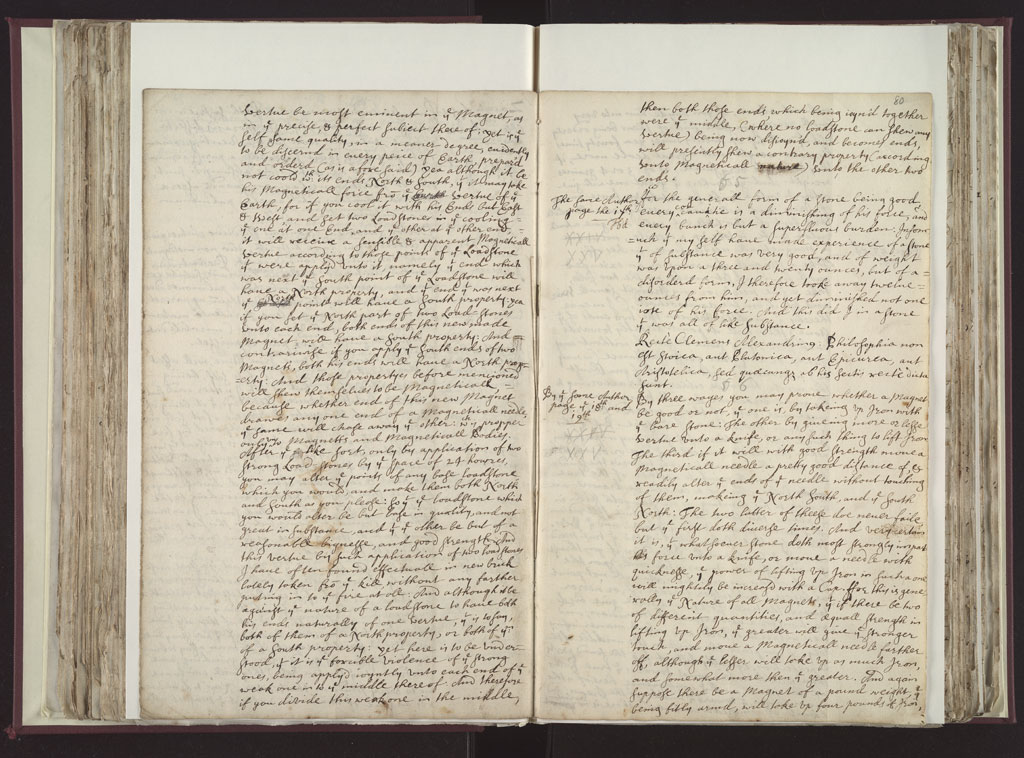 vertue be most eminent in yͤ Magnet, as
in yͤ precise, & perfect subiect there of; yet is yͤ
self same quality, in a meaner degree, evidently
to be discernd in every peice of Earth, prepar'd
and orderd (as is afore said) yea although it be
not coold wͭͪ its ends North & South, yͭ it may take
his Magneticall force fro yͤ vertue of yͤ
Earth, for if you cool it with his Ends but East
& West, and set two Loadstones in yͤ cooling
yͤ one at one End, and yͤ other at yͤ other end:
it will receive a sensible & apparent Magneticall
vertue according to those points of yͤ Loadstone
yͭ were apply'd unto it, namely yͤ end which
was next yͤ South point of yͤ Loadstone will
have a North property, and yͤ end yͭ was next
yͤ North point will have a South property: yea
if you set yͤ North part of two Load-stones
unto each end, both ends of this new made
Magnet, will have a South property: And =
contrariwise if you apply yͤ South ends of two
Magnets, both his ends will have a North prop=
=erty: And those propertyes before mentioned
will shew themselves to be Magneticall =
because whether end of this new Magnet
drawes any one end of a Magneticall needle,
yͤ same will chase away yͤ other: wͨͪ is propper
only to Magnetts and Magneticall Bodies.
After yͤ like sort, only by application of two
strong Load stones by yͤ space of 24 howres,
you may alter yͤ points of any base Loadstone
which you would, and make them both North
and South as you please: so yͭ yͤ Loadstone which
you would alter be but base in quality, and not
great in substance, and yͭ yͤ other be but of a
reasonable bignesse, and good strength. And
this vertue by such application of two loadstones
I have often found effectuale in new brick
lately taken fro yͤ kill without any farther
putting in to yͤ fire at all. And although it be
against yͤ nature of a loadstone to have both
his ends naturally of one vertue, yͭ is to say,
both of them of a North property, or both of yͫ
of a South property: yet here is to be under=
stood, yͭ it is yͤ forcible violence of yͤ strong
ones, being apply'd ioyntly unto each end of yͤ
weak one in to yͤ middle there of. And therefore
if you divide this weak one in the middle,
80
then both those ends which being ioyn'd together
were yͤ middle, (where no loadstone can shew any
vertue) being now disioynd, and becomes ends,
will presently shew a contrary property (according
unto Magneticall nature) unto the other two
ends.
55
The same Author
page the 17ͭͪ
For the generall form of a stone being good,
every cankre is a diminishing of his force, and
every bunch is but a superfluous burden. Insom=
=uch yͭ my self have made experience of a stone
yͭ of substance was very good, and of weight
was upon a three and twenty ounces, but of a =
disorderd form, I therefore took away twelve
ounces from him, and yet diminished not one
iote of his force. And this did I in a stone
yͭ was all of like substance.
Recte Clemens Alexandrinus. Philosophia non
est Stoica, aut Plutonica, aut Epicurea, aut
Aristotelica, sed quæcunq ab his sectis recte dicta
sunt.
56
By yͤ same Author
page yͤ 18ͭͪ and
19ͭͪ
By three wayes you may prove whether a Magnet
be good or not, yͤ one is, by taking up Iron with
yͤ bare stone: The other by giveing more or lesse
vertue unto a knife, or any such thing to lift Iron
The third if it will with good strength move a
Magneticall needle a pretty good distance of, &
readily alter yͤ ends of yͤ needle without touching
of them, making yͤ North South, and yͤ South
North: The two latter of these doe never faile,
but yͤ first doth diverse times. And very certain
it is, yͭ whatsoever stone doth most strongly impart
his force unto a knife, or move a needle with
quickness, yͤ power of lifting up Iron in such a one
will mightily be increased with a Cap. For this is gene
rally yͤ Nature of all Magnets, yͭ if there be two
of different quantities, and æquall strength in
lifting up Iron, yͤ greater will give yͤ stronger
touch, and move a Magneticall needle farther
of, although yͤ lesser will take up as much Iron,
and somewhat more then yͤ greater. And again
suppose there be a Magnet of a pound weight, yͭ
being fitly armd, will take up four pounds of Iron